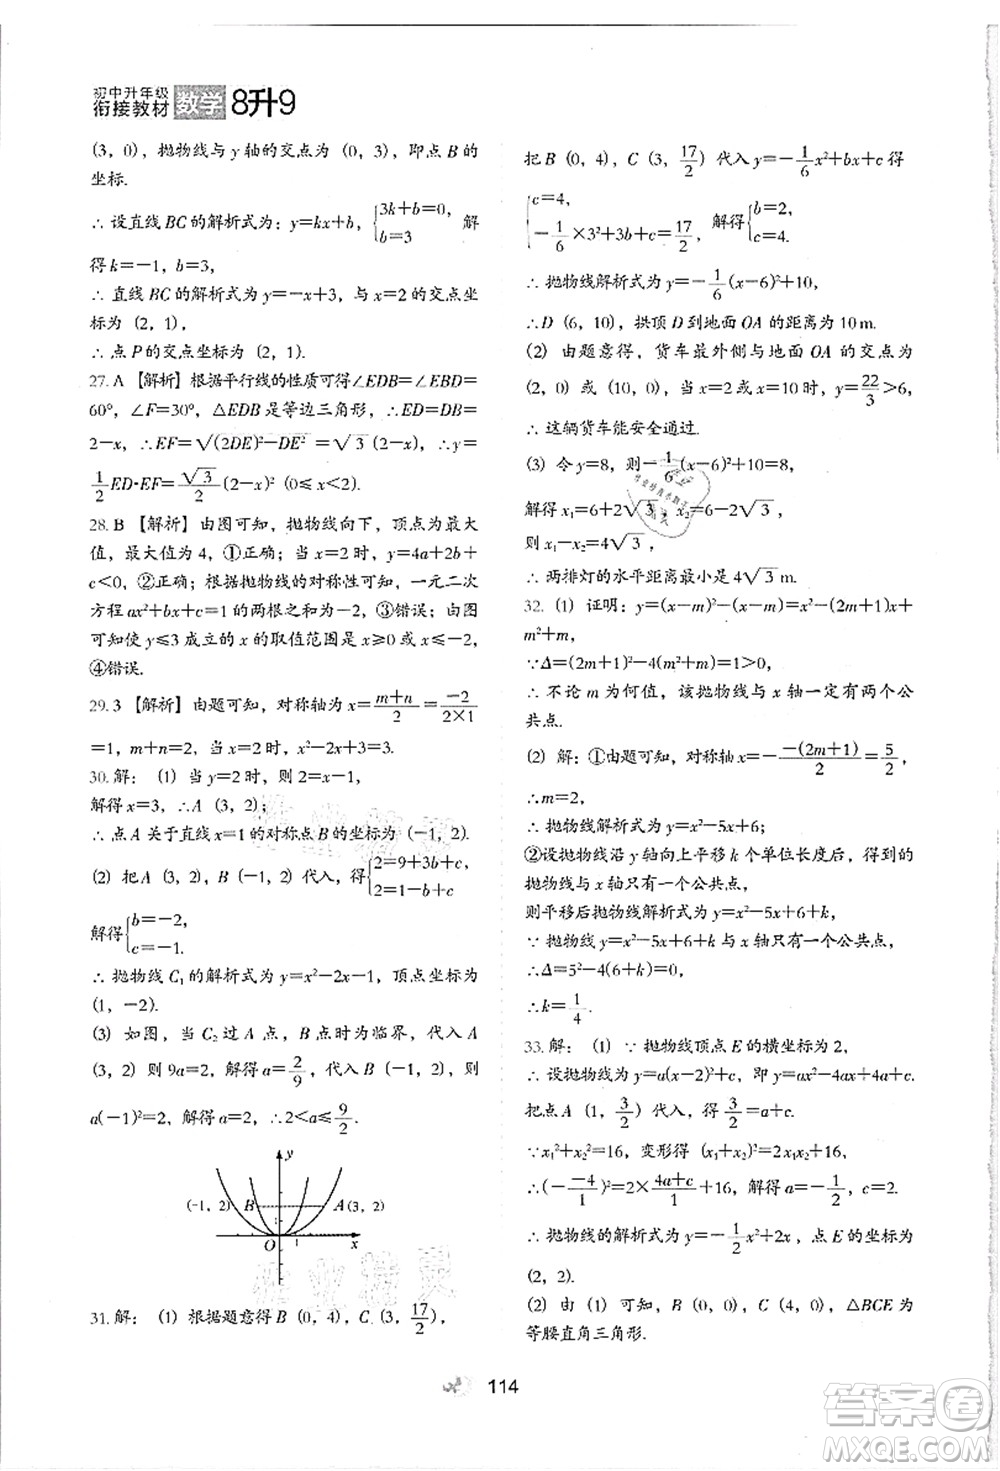 初中升年级
衔接教材 数学 8升9
(3，0)，抛物线与 y 轴的交点为 (0，3)，即点 B 的
坐标.
∴ 设直线 BC 的解析式为：y=kx+b，{3k+b=0, b=3 解
得 k=-1，b=3，
∴ 直线 BC 的解析式为 y=-x+3，与 x=2 的交点坐
标为 (2，1)，
∴ 点 P 的交点坐标为 (2，1).
27. A 【解析】根据平行线的性质可得∠EDB=∠EBD=
60°，∠F=30°，△EDB 是等边三角形，∴ED=DB=
2-x，∴EF=√((2DE)²-DE²)=√3 (2-x)，∴y=
1/2 ED·EF=√3/2 (2-x)² (0≤x≤2).
28. B 【解析】由图可知，抛物线向下，顶点为最大
值，最大值为 4，①正确；当 x=2 时，y=4a+2b+
c<0，②正确；根据抛物线的对称性可知，一元二次
方程 ax²+bx+c=1 的两根之和为-2，③错误；由图
可知使 y≤3 成立的 x 的取值范围是 x≥0 或 x≤-2，
④错误.
29. 3 【解析】由题可知，对称轴为 x=(m+n)/2=-(-2)/(2×1)
=1，m+n=2，当 x=1+n=3.
30. 解：(1) 当 y=2 时，则 2=x-1，
解得 x=3，∴A (3，2)；
∴ 点 A 关于直线 x=1 的对称点 B 的坐标为 (-1，2).
(2) 把 A (3，2)，B (-1，2) 代入，得{2=9+3b+c, 2=1-b+c,
解得{b=-2, c=-1.
∴ 抛物线 C₁ 的解析式为 y=x²-2x-1，顶点坐标为
(1，-2).
(3) 如图，当 C₂ 过 A 点，B 点时为临界，代入 A
(3，2) 则 9a=2，解得 a=2/9，代入 B (-1，2)，则
a(-1)²=2，解得 a=2，∴2<a≤9/2.
y
(-1，2) B A (3，2)
O 1 x
31. 解：(1) 根据题意得 B (0，4)，C (3，17/2)，
把 B (0，4)，C (3，17/2) 代入 y=-1/6x²+bx+c 得
{c=4, -1/6×3²+3b+c=17/2， 解得{b=2, c=4.
∴ 抛物线解析式为 y=-1/6(x-6)²+10，
∴D (6，10)，拱顶 D 到地面 OA 的距离为 10 m.
(2) 由题意得，货车最外侧与地面 OA 的交点为
(2，0) 或 (10，0)，当 x=2 或 x=10 时，y=22/3>6，
∴ 这辆货车能安全通过.
(3) 令 y=8，则-1/6(x-6)²+10=8，
解得 x₁=6+2√3，x₂=6-2√3，
则 x₁-x₂=4√3，
∴ 两排灯的水平距离最小是 4√3 m.
32. (1) 证明：y=(x-m)²-(x-m)=x²-(2m+1)x+
m²+m，
∵Δ=(2m+1)²-4(m²+m)=1>0，
∴ 不论 m 为何值，该抛物线与 x 轴一定有两个公
共点.
(2) 解：①由题可知，对称轴 x=-(-(2m+1))/2=5/2，
∴m=2，
∴ 抛物线解析式为 y=x²-5x+6；
②设抛物线沿 y 轴向上平移 k 个单位长度后，得到的
抛物线与 x 轴只有一个公共点，
则平移后抛物线解析式为 y=x²-5x+6+k，
∵ 抛物线 y=x²-5x+6+k 与 x 轴只有一个公共点，
∴Δ=5²-4(6+k)=0，
∴k=1/4.
33. 解：(1) ∵ 抛物线顶点 E 的横坐标为 2，
∴ 设抛物线解析式为 y=a(x-2)²+c，即 y=ax²-4ax+4a+c.
把点 A (1，3/2) 代入，得 3/2=a+c.
∵x₁²+x₂²=16，变形得 (x₁+x₂)²=2x₁x₂+16，
∴(-(-4)/1)²=2×(4a+c)/1+16，解得 a=-1/2，c=2.
∴ 抛物线的解析式为 y=-1/2x²+2x，点 E 的坐标为
(2，2).
(2) 由 (1) 可知，B (0，0)，C (4，0)，△BCE 为
等腰直角三角形.
114
答案圈
MXQE.COM